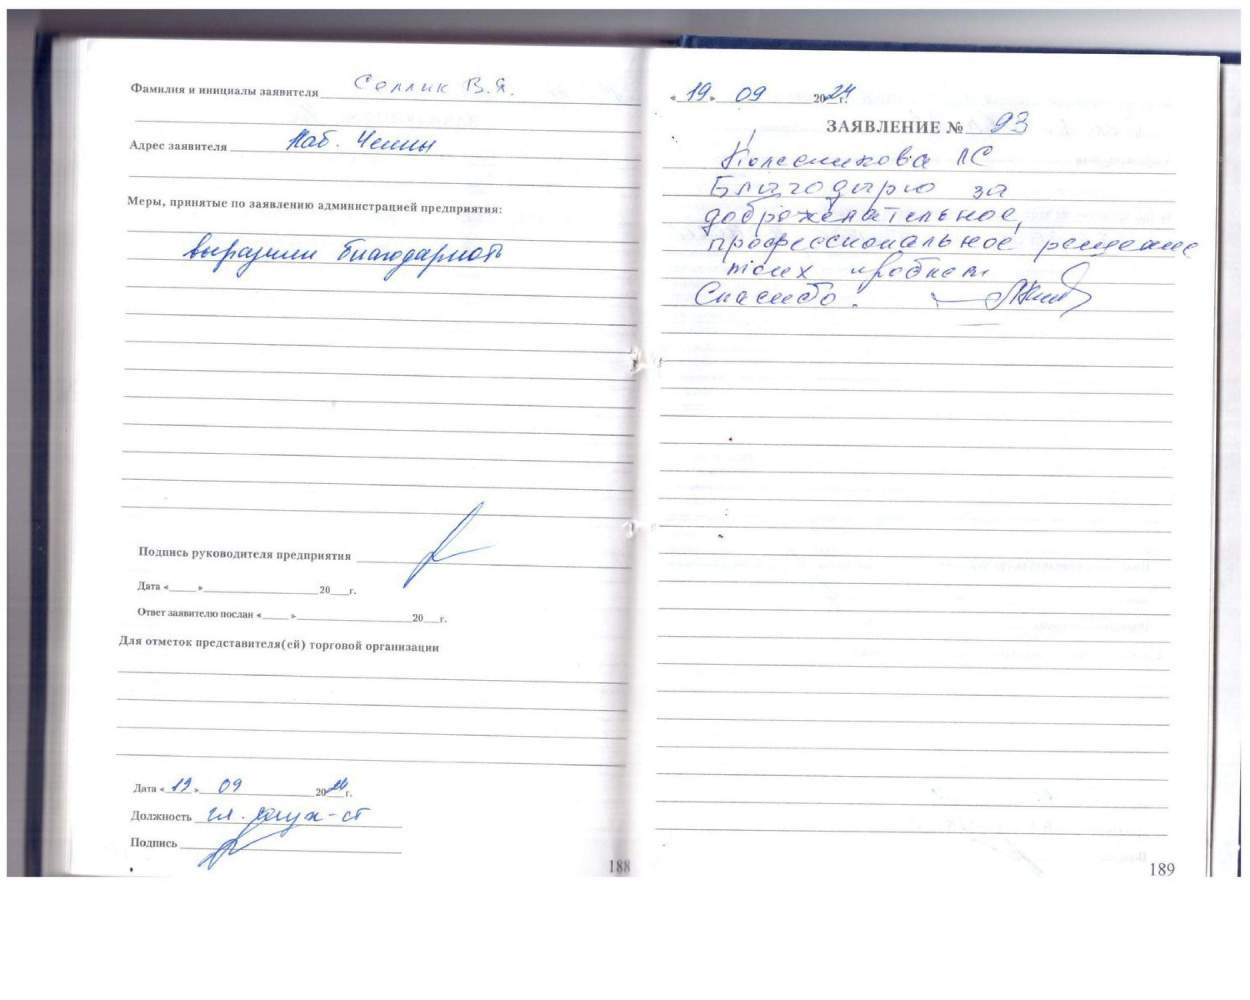 Фамилия и инициалы заявителя Селлик В.Я.
Адрес заявителя Наб. Челны
Меры, принятые по заявлению администрацией предприятия:
выразили благодарность
Подпись руководителя предприятия
Дата «___» ___ 20___г.
Ответ заявителю послан «___» ___ 20___г.
Для отметок представителя(ей) торговой организации
Дата «19» 09 2024 г.
Должность гл.
Подпись
188
«19» 09 2024 г.
ЗАЯВЛЕНИЕ № 93
Колесникова ЛС
Благодарю за
доброжелательное,
профессиональное решение
моих проблем
Спасибо.
189